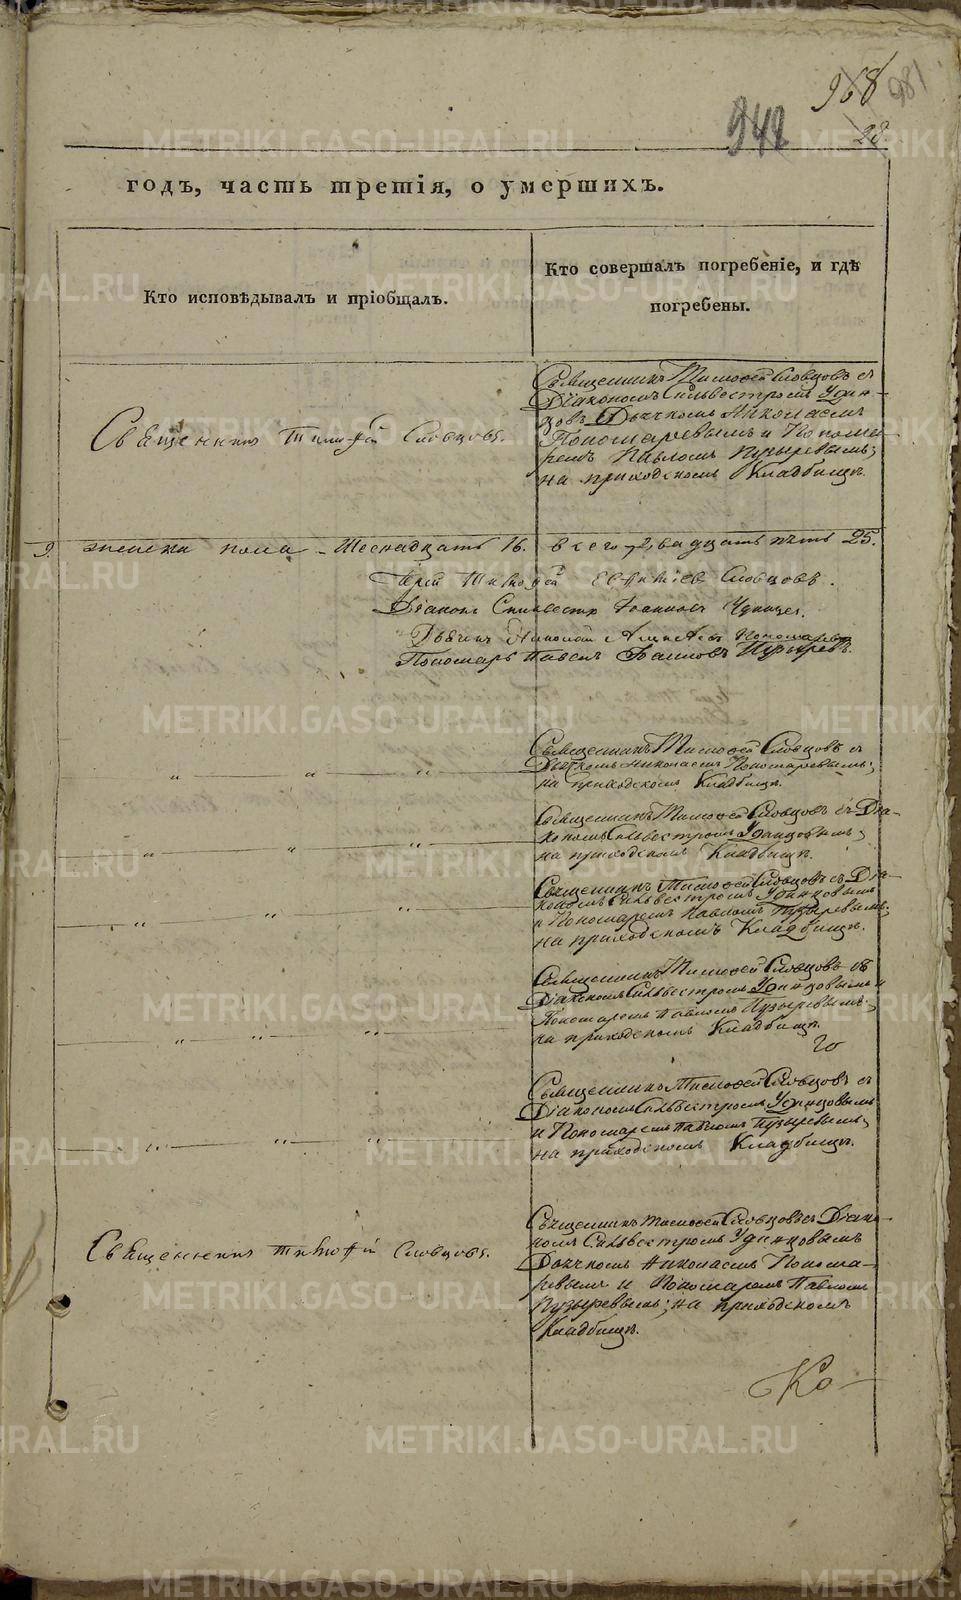 968
981
942
28
годъ, часть третія, о умершихъ.
Кто исповѣдывалъ и пріобщалъ.
Кто совершалъ погребеніе, и гдѣ
погребены.
Священникъ Тимофей Словцовъ.
Священникъ Тимофей Словцовъ съ
Діакономъ Сильвестромъ Удин-
цовъ Дьячкомъ Николаемъ
Пономаревымъ и Понома-
ремъ Павломъ Пузыревымъ;
на приходскомъ Кладбищѣ.
9. женска пола – Шеснадцать 16. всего двадцать пять 25.
Іерей Тимофей Евфиміев Словцовъ.
Діаконъ Сильвестр Іоаннов
Дьячек Николай Алексѣев Пономаревъ
Пономарь Павел Іоаннов Пузыревъ.
Священникъ Тимофей Словцовъ съ
Дьячкомъ Николаемъ Пономаревымъ;
на приходскомъ Кладбищѣ.
Священникъ Тимофей Словцовъ съ Діа-
кономъ Сильвестромъ Удинцовымъ;
на приходскомъ Кладбищѣ.
Священникъ Тимофей Словцовъ съ Діа-
кономъ Сильвестромъ Удинцовымъ
и Пономаремъ Павломъ Пузыревымъ;
на приходскомъ Кладбищѣ.
Священникъ Тимофей Словцовъ съ
Діакономъ Сильвестромъ Удинцовымъ и
Пономаремъ Павломъ Пузыревымъ;
на приходскомъ Кладбищѣ.
Священникъ Тимофей Словцовъ съ
Діакономъ Сильвестромъ Удинцовымъ
и Пономаремъ Павломъ Пузыревымъ;
на приходскомъ Кладбищѣ.
Священникъ Тимофей Словцовъ.
Священникъ Тимофей Словцовъ съ Діако-
номъ Сильвестромъ Удинцовымъ
Дьячкомъ Николаемъ Понома-
ревымъ и Пономаремъ Павломъ
Пузыревымъ; на приходскомъ
Кладбищѣ.
Ко-
METRIKI.GASO-URAL.RU